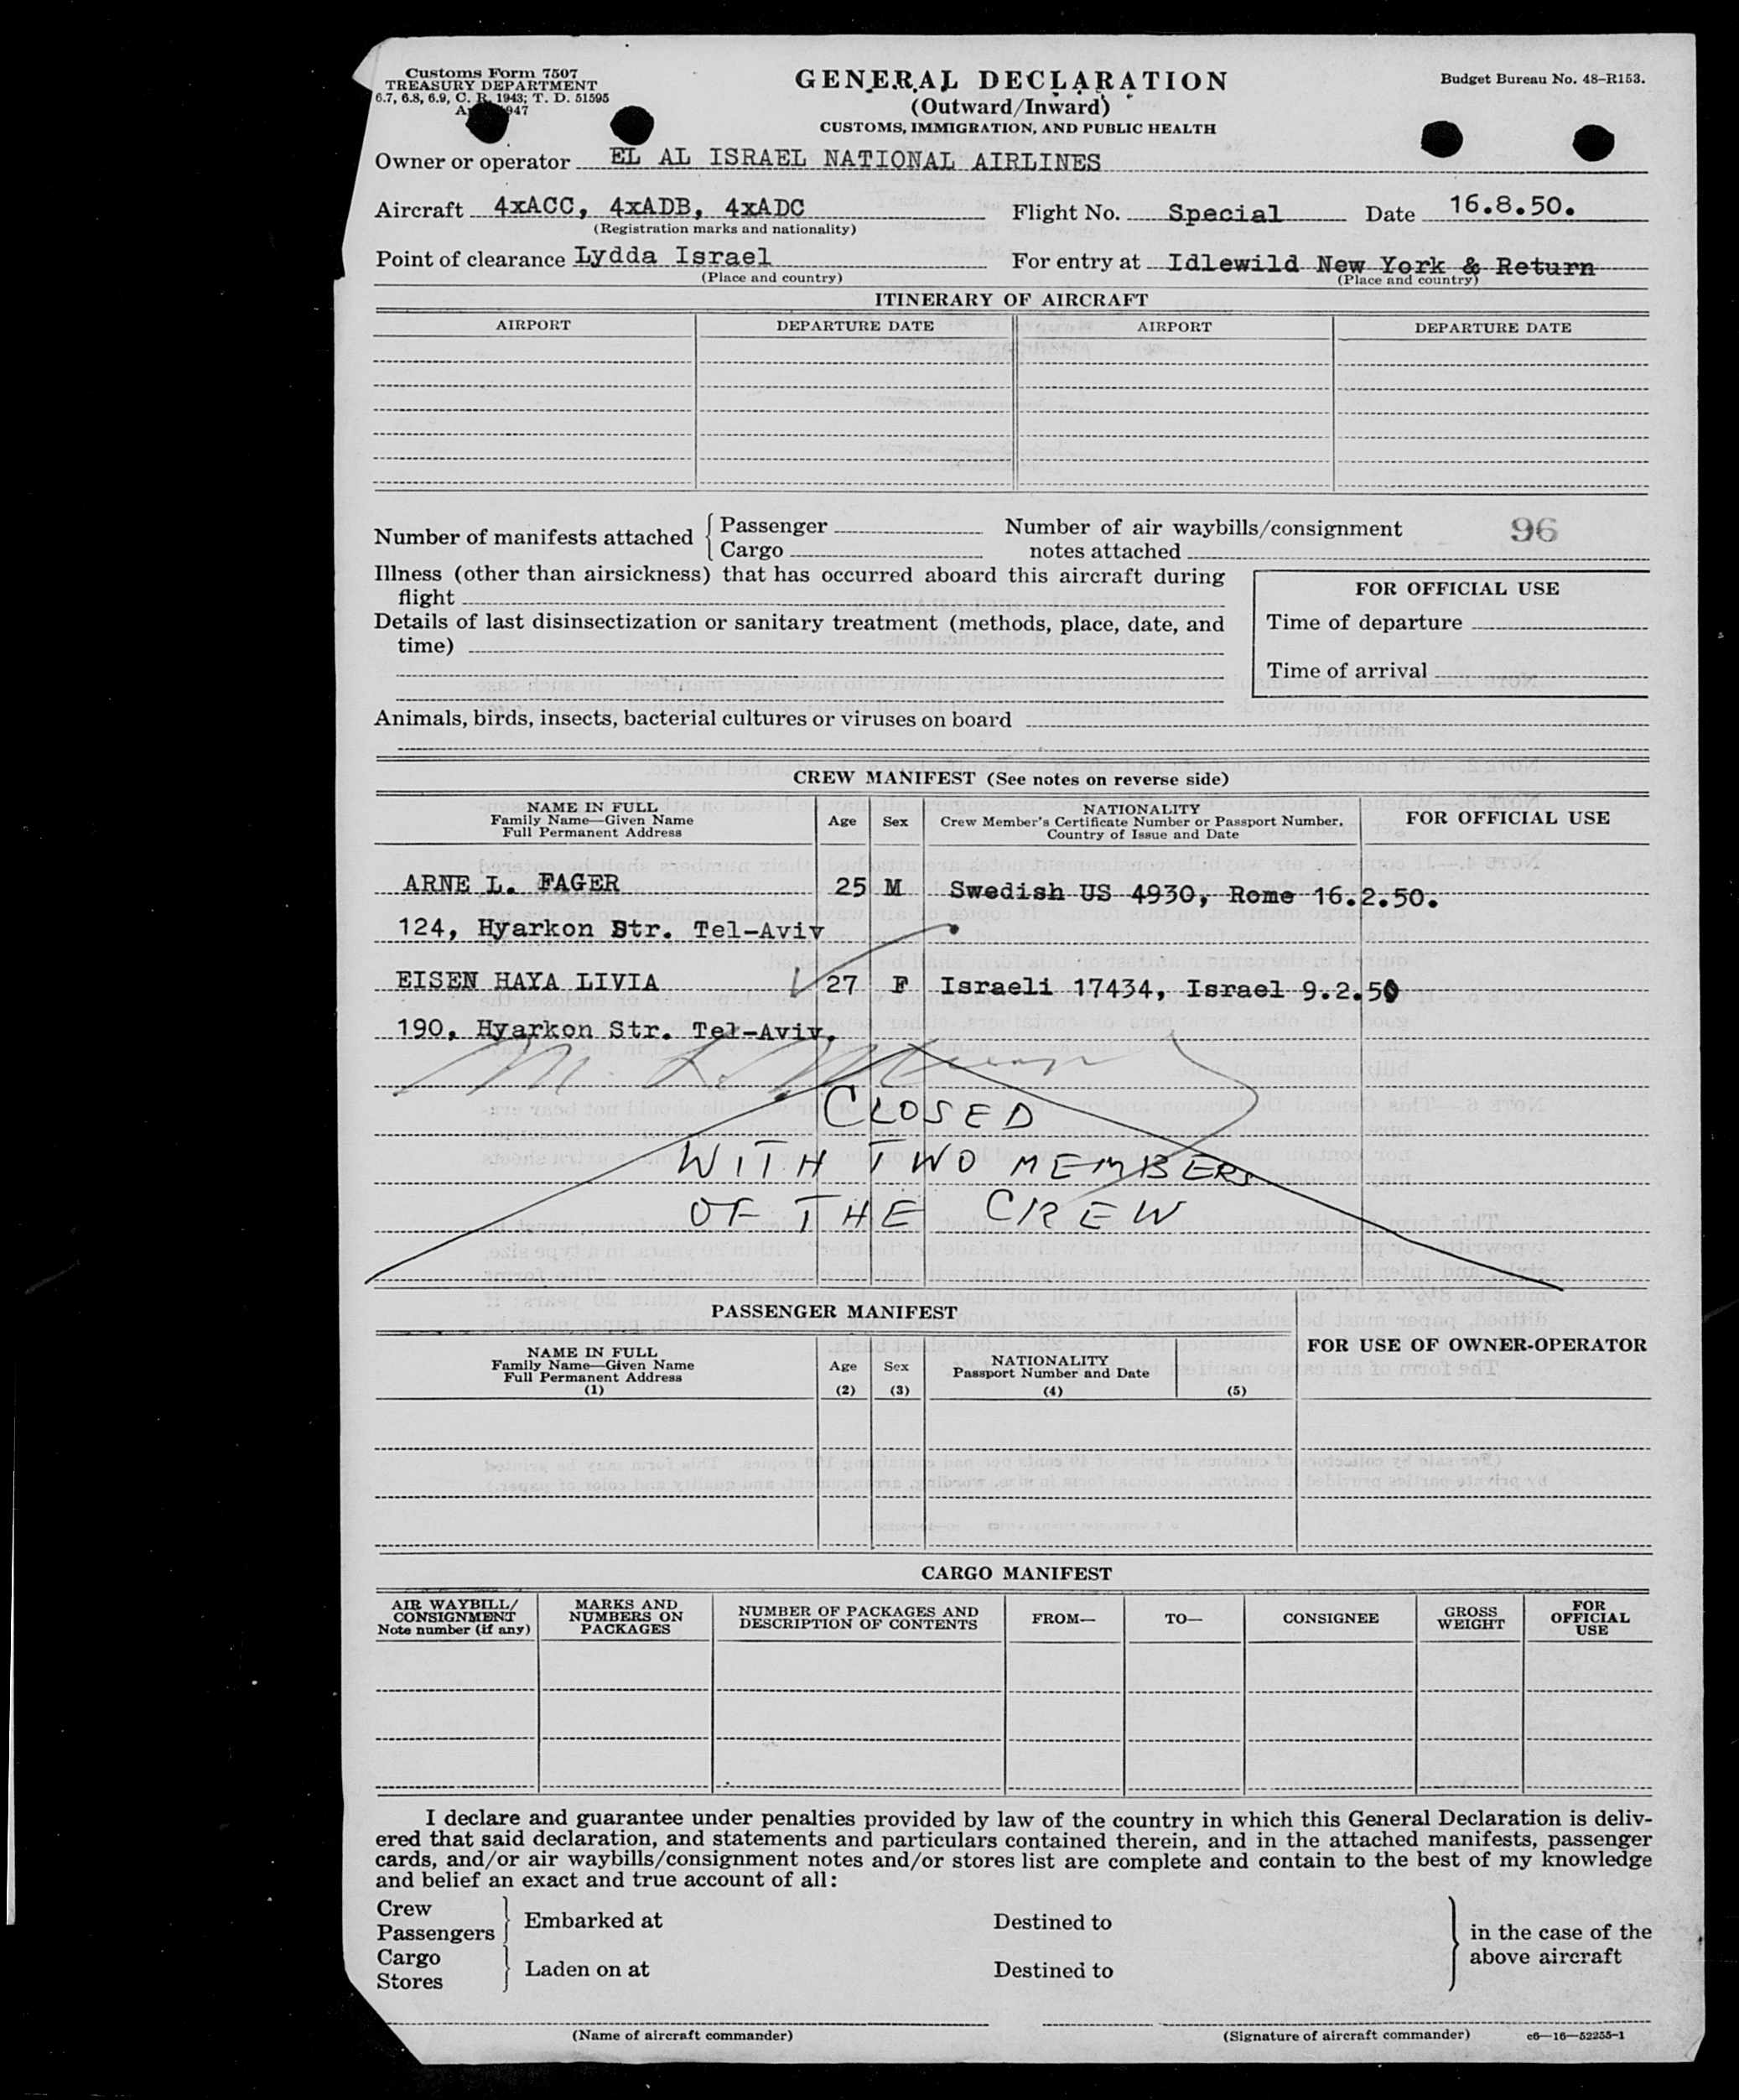 Customs Form 7507
TREASURY DEPARTMENT
6.7, 6.8, 6.9, C. R. 1943; T. D. 51595
947
GENERAL DECLARATION
(Outward/Inward)
CUSTOMS, IMMIGRATION, AND PUBLIC HEALTH
Budget Bureau No. 48-R153.
Owner or operator EL AL ISRAEL NATIONAL AIRLINES
Aircraft 4xACC, 4xADB, 4xADC Flight No. Special Date 16.8.50.
(Registration marks and nationality)
Point of clearance Lydda Israel For entry at Idlewild New York & Return
(Place and country) (Place and country)
ITINERARY OF AIRCRAFT
AIRPORT DEPARTURE DATE AIRPORT DEPARTURE DATE
Number of manifests attached { Passenger
Cargo
Number of air waybills/consignment
notes attached
96
Illness (other than airsickness) that has occurred aboard this aircraft during
flight
Details of last disinsectization or sanitary treatment (methods, place, date, and
time)
FOR OFFICIAL USE
Time of departure
Time of arrival
Animals, birds, insects, bacterial cultures or viruses on board
CREW MANIFEST (See notes on reverse side)
NAME IN FULL
Family Name—Given Name
Full Permanent Address
Age
Sex
NATIONALITY
Crew Member's Certificate Number or Passport Number,
Country of Issue and Date
FOR OFFICIAL USE
ARNE L. FAGER 25 M Swedish US 4930, Rome 16.2.50.
124, Hyarkon Str. Tel-Aviv
EISEN HAYA LIVIA 27 F Israeli 17434, Israel 9.2.50
190, Hyarkon Str. Tel-Aviv.
CLOSED
WITH TWO MEMBERS
OF THE CREW
PASSENGER MANIFEST
NAME IN FULL
Family Name—Given Name
Full Permanent Address
(1)
Age
(2)
Sex
(3)
NATIONALITY
Passport Number and Date
(4)
(5)
FOR USE OF OWNER-OPERATOR
CARGO MANIFEST
AIR WAYBILL/
CONSIGNMENT
Note number (if any)
MARKS AND
NUMBERS ON
PACKAGES
NUMBER OF PACKAGES AND
DESCRIPTION OF CONTENTS
FROM—
TO—
CONSIGNEE
GROSS
WEIGHT
FOR
OFFICIAL
USE
I declare and guarantee under penalties provided by law of the country in which this General Declaration is deliv-
ered that said declaration, and statements and particulars contained therein, and in the attached manifests, passenger
cards, and/or air waybills/consignment notes and/or stores list are complete and contain to the best of my knowledge
and belief an exact and true account of all:
Crew
Passengers } Embarked at Destined to
Cargo
Stores } Laden on at Destined to
} in the case of the
above aircraft
(Name of aircraft commander) (Signature of aircraft commander) c6—16—52255-1